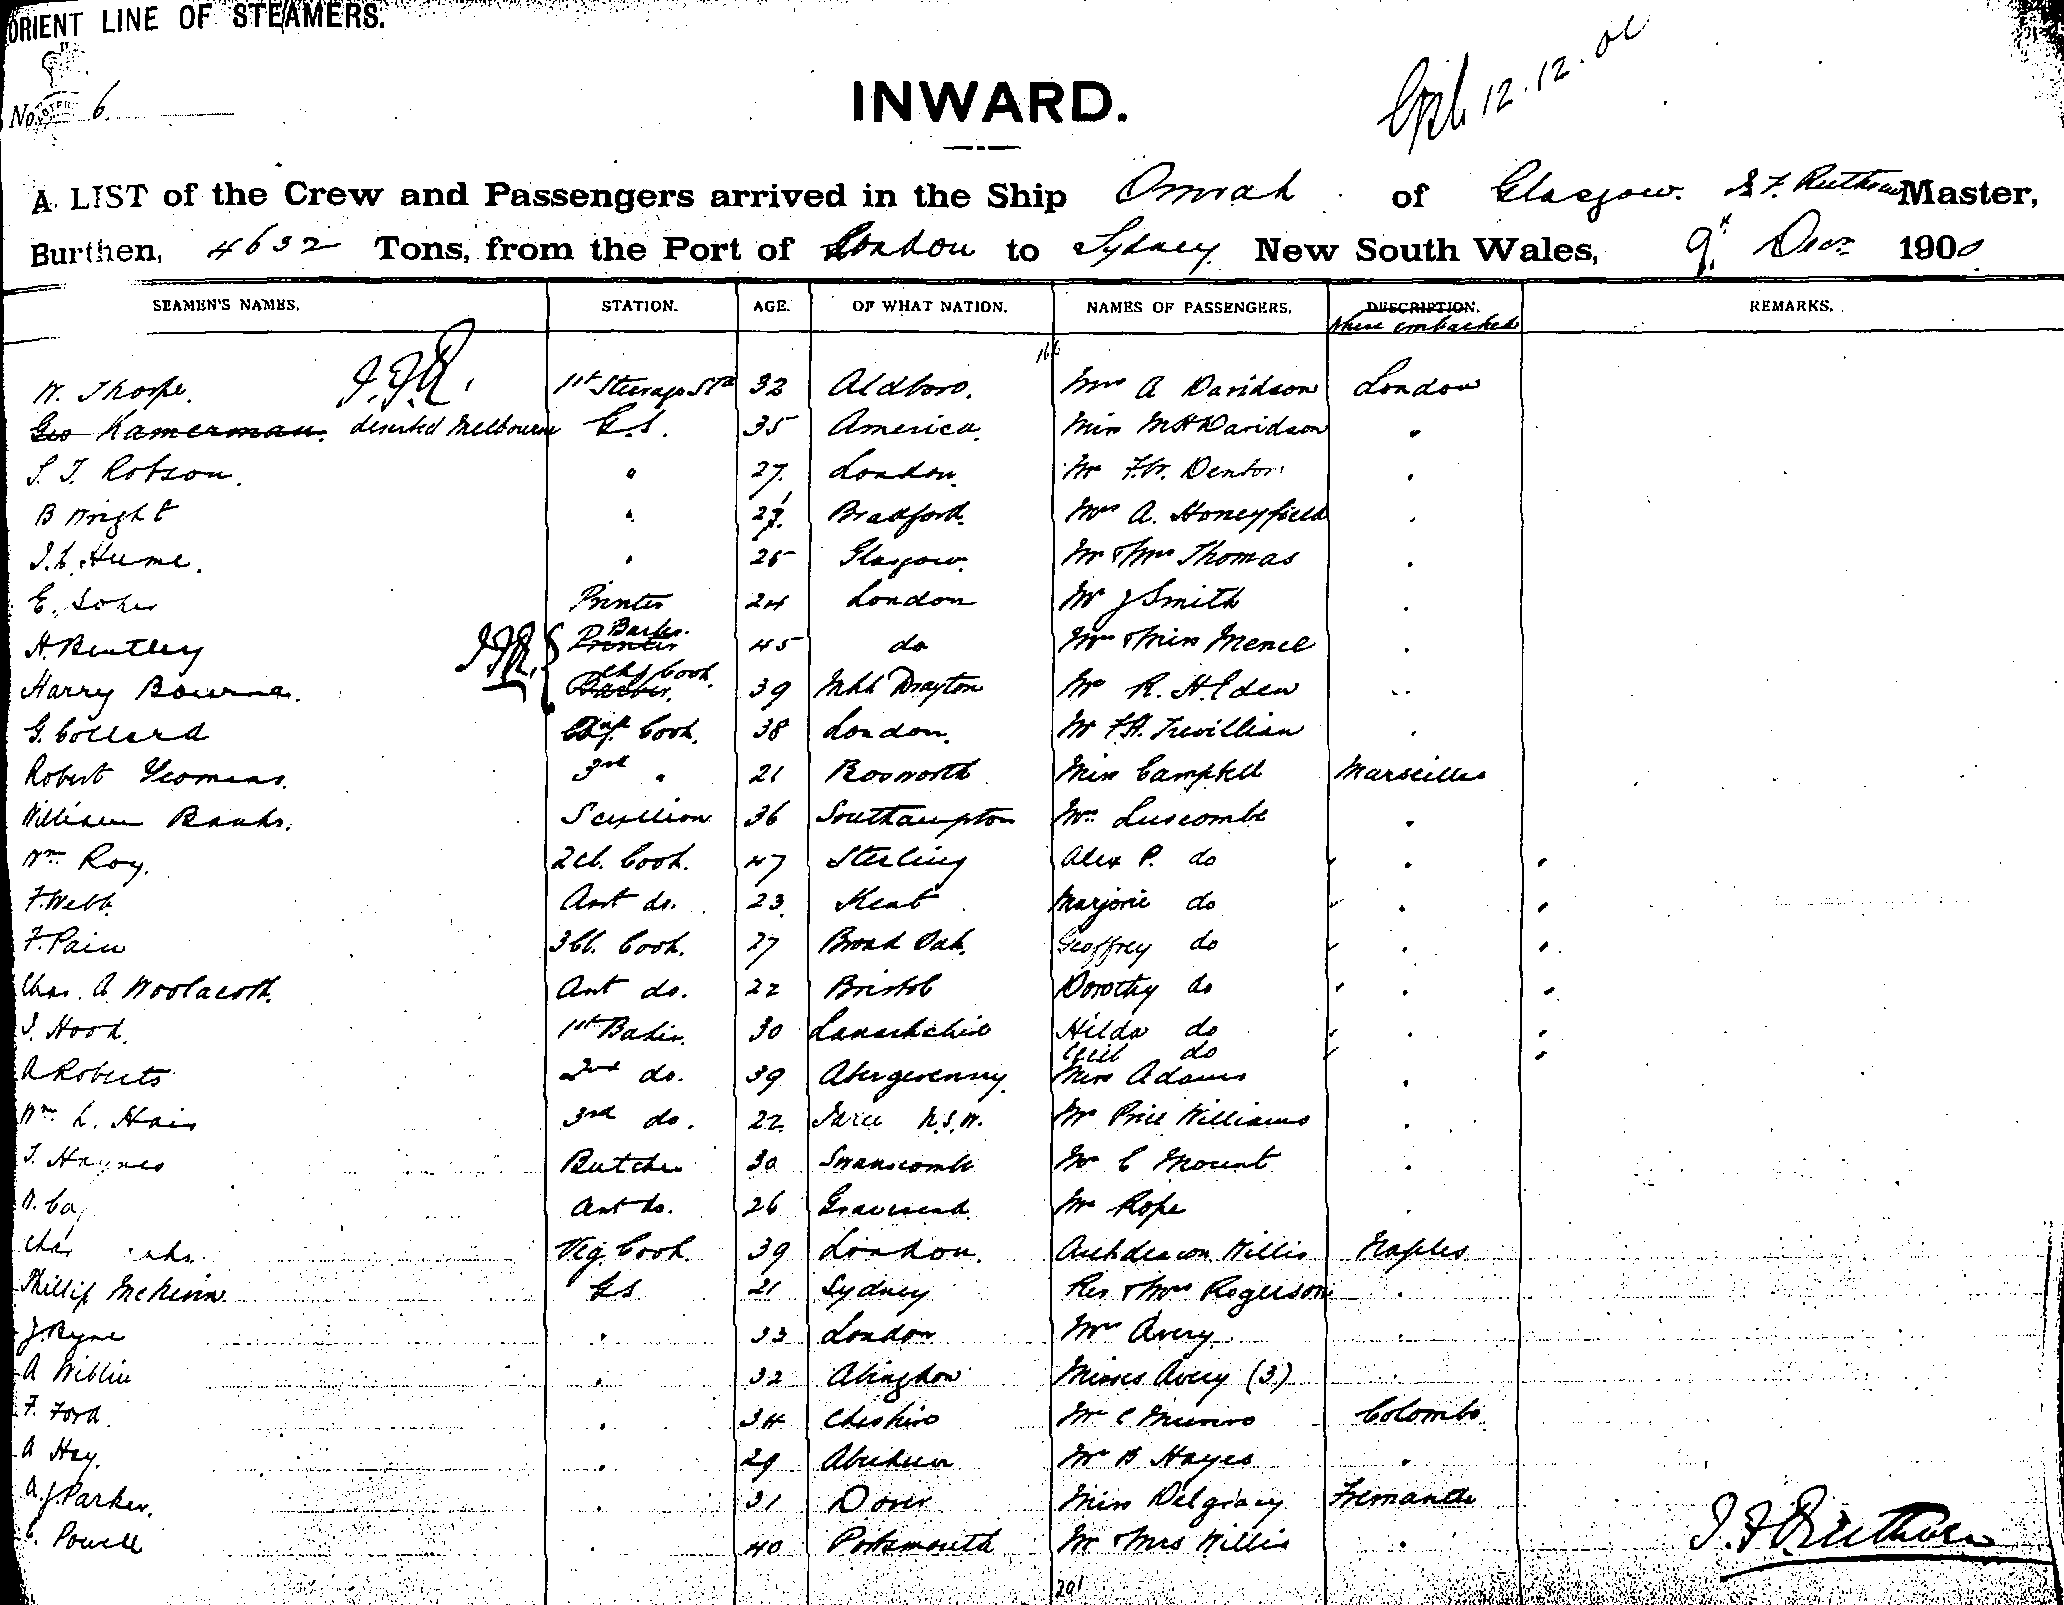 ORIENT LINE OF STEAMERS.
No. 6.
INWARD.
12.12.00
A LIST of the Crew and Passengers arrived in the Ship Omrah of Glasgow. J. F. Ruthven Master,
Burthen, 4632 Tons, from the Port of London to Sydney New South Wales, 9th Decr 1900
SEAMEN'S NAMES. STATION. AGE. OF WHAT NATION. NAMES OF PASSENGERS. DESCRIPTION. REMARKS.
Where embarked
166
W. Thorpe. J.F.R. 1st Steerage Std 32 Aldboro. Mrs A Davidson London
Geo Kamerman. deserted Melbourne G.S. 35 America. Miss M H Davidson "
S. J. Robson. " 27. London. Mr F. W. Denton "
B Wright " 27. Bradford. Mrs A. Honeyfield "
J. L. Hume. " 25 Glasgow. Mr & Mrs Thomas "
E. Printer 24 London Mr J Smith "
H. Bentley J.F.R. Printer Barber. 45 do Mrs & Miss Mence "
Harry Bourne. Barber. Chf Cook. 39 Mkt Drayton Mr R. H. Eden "
G. Collard Cook. 38 London. Mr F. H. Trevillian "
Robert Yeomans. 3rd " 21 Bosworth Miss Campbell Marseilles
William Banks. Scullion 36 Southampton Mrs Luscombe "
Wm Roy. 2 Cl. Cook. 47 Sterling Alex P. do "
F. Webb. Asst do. 23 Kent Marjorie do "
F. Pain 3 Cl. Cook. 27 Broad Oak. Geoffrey do "
Chas. A Woolacott. Asst do. 22 Bristol Dorothy do "
J. Hood. 1st Baker. 30 Lanarkshire Hilda do "
Cecil do
A Roberts 2nd do. 39 Abergevenny. Miss Adams "
Wm L. Hais 3rd do. 22 Taree N.S.W. Mr Price Williams "
T. Haynes Butcher 30 Swanscombe Mr C Mount "
Asst do. 26 Gravesend Mr Rope "
Chas Veg. Cook 39 London. Archdeacon Willis Naples
Phillip McNevin G.S 21 Sydney Rev & Mrs Rogerson "
J. Ryne " 33 London Mrs Avery "
A Niblin " 32 Abingdon Misses Avery (3) "
F. Ford. " 34 Cheshire Mr C Munro Colombo
A Hay. " 29 Aberdeen Mr B Hayes "
A. J. Parker. " 31 Dover Miss Delgracy Fremantle
Powell " 40 Portsmouth Mr & Mrs Willis "
J. F. Ruthven
201